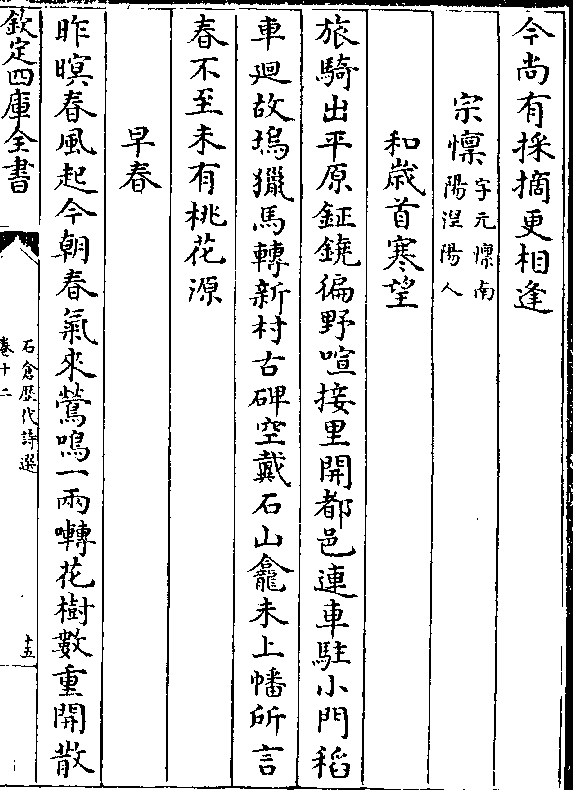 今尚有採摘更相逢
宗懍字元懔南
陽涅陽人
和歳首寒望
旅騎出平原鉦鐃徧野喧接里開都邑連車駐小門稻
車廻故塢獵馬轉新村古碑空戴石山龕未上幡所言
春不至未有桃花源
早春
昨暝春風起今朝春氣來鶯鳴一兩囀花樹數重開散
欽定四庫全書
石倉歴代詩選
卷十二
十五